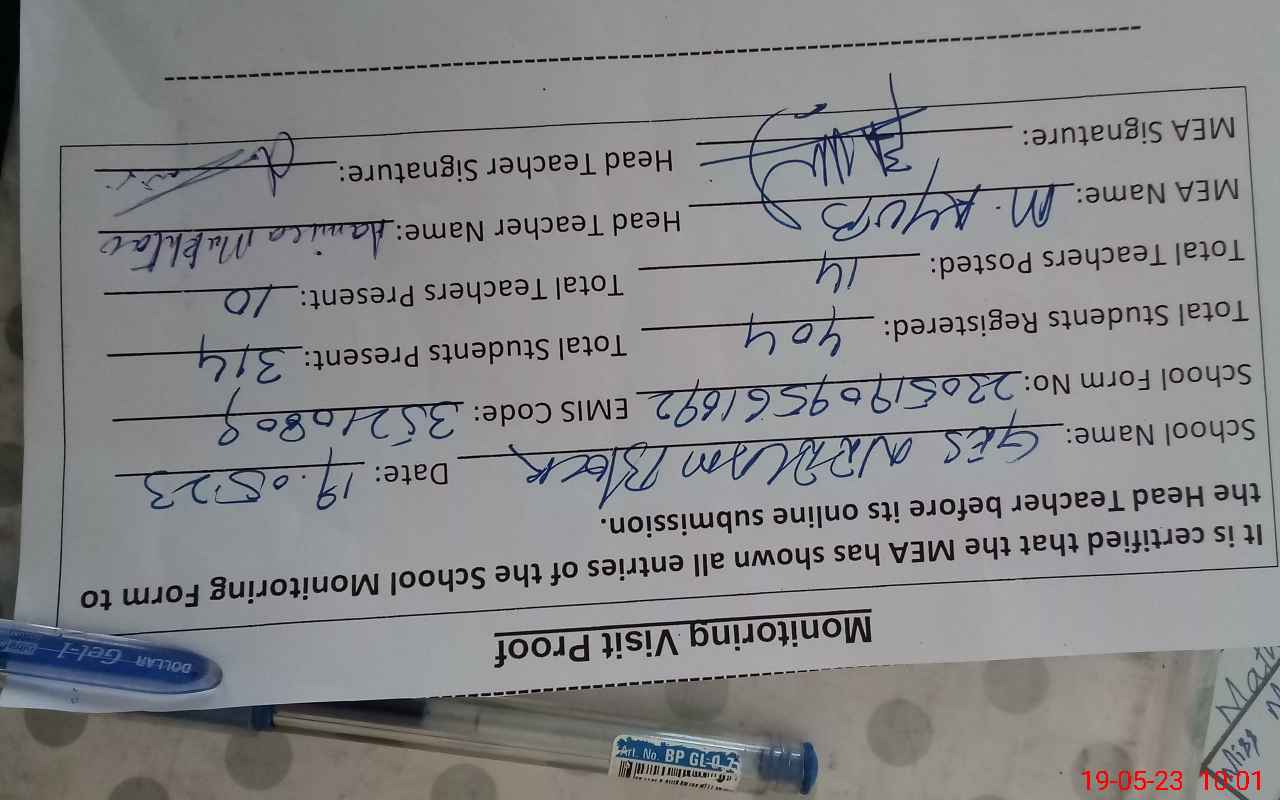 Monitoring Visit Proof
It is certified that the MEA has shown all entries of the School Monitoring Form to
the Head Teacher before its online submission.
School Name: GES Block Date: 19.05.23
School Form No: 23051909561692 EMIS Code: 35210809
Total Students Registered: 404 Total Students Present: 314
Total Teachers Posted: 14 Total Teachers Present: 10
MEA Name: M. AYUB Head Teacher Name: Mukhtar
MEA Signature: Head Teacher Signature:
DOLLAR Gel-1
Art. No. BP GL-0.7
Math
Miss
19-05-23 10:01